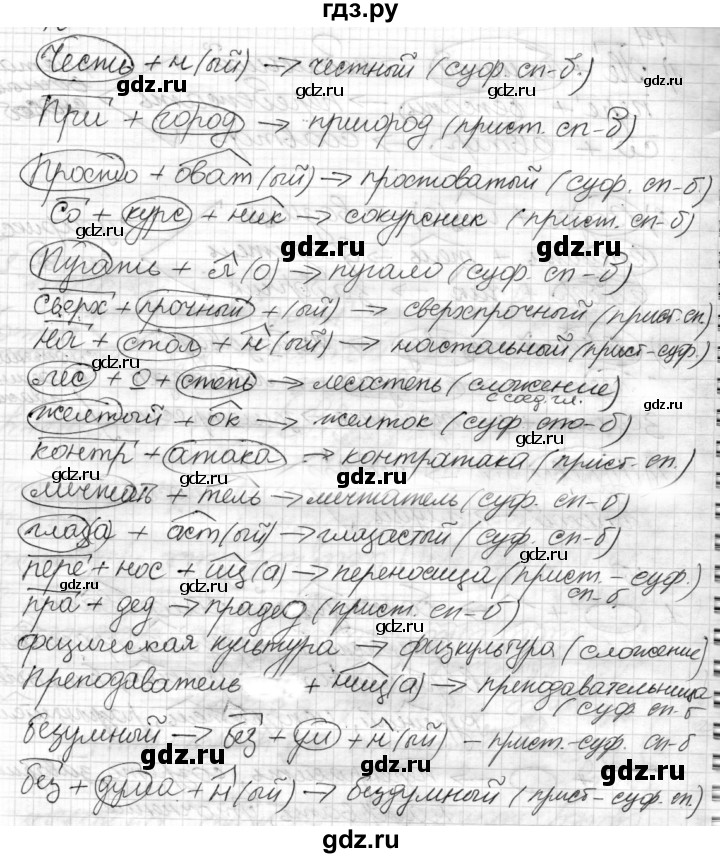 гдз.ру
Честь + н (ый) → честный (суф. сп-б.)
При + город → пригород (прист. сп-б)
Просто + оват (ый) → простоватый (суф. сп-б)
Со + курс + ник → сокурсник (прист. сп-б)
Пугать + л (о) → пугало (суф. сп-б)
Сверх + прочный + (ый) → сверхпрочный (прист. сп.)
На + стол + н (ый) → настольный (прист-суф.)
лес + о + степь → лесостепь (сложение
с соед. гл.)
желтый + ок → желток (суф. спо-б)
контр + атака → контратака (прист-сп.)
мечтать + тель → мечтатель (суф. сп-б)
глаза + аст (ый) → глазастый (суф. сп-б)
пере + нос + иц (а) → переносица (прист. - суф.)
сп-б.
пра + дед → прадед (прист. сп-б)
физическая культура → физкультура (сложение)
Преподаватель + ниц (а) → преподавательница
(суф. сп-б
безумный → без + ум + н (ый) - прист.-суф. сп-б
без + дума + н (ый) → бездумный (прист-суф. сп.)
gdz.ru